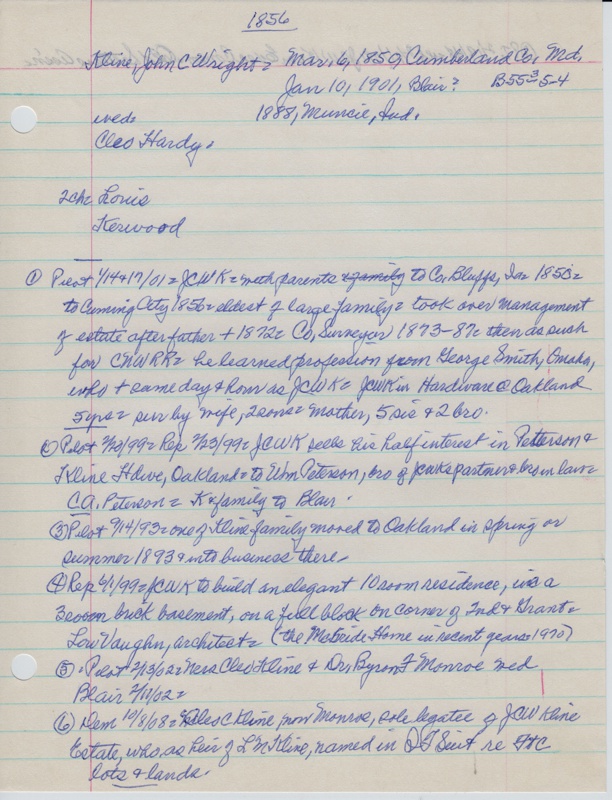 1856
Kline, John C Wright = Mar. 6, 1850, Cumberland Co, Md.
Jan 10, 1901, Blair? B55 S-4
wed: 1888, Muncie, Ind.
Cleo Hardy.
2ch: Louis
Kerwood
① Pilot 1/14+17/01 = JCWK = with parents & family to Co. Bluffs, Ia = 1853 =
to Cuming City 1856 = eldest of large family = took over management
of estate after father + 1872 = Co, Surveyor 1873-87 = then as such
for CNWRR = he learned profession from George Smith, Omaha,
who + same day & hour as JCWK = JCWK in Hardware @ Oakland
5 yrs = surv by wife, 2 sons = mother, 5 sis & 2 bro.
② Pilot 7/20/99 = Rep 7/23/99 = JCWK sells his half interest in Petterson &
Kline Hdwe, Oakland = to Wm Peterson, bro of JCWK's partner & bro in law =
C.A. Peterson = K & family to Blair.
③ Pilot 9/14/93 = one of Kline family moved to Oakland in spring or
summer 1893 & into business there.
④ Rep 6/1/99 = JCWK to build an elegant 10 room residence, inc a
3 room brick basement, on a full block on corner of 2nd & Grant =
Low Vaughn, architect = (the McBride Home in recent years 1970)
⑤ Pilot 2/13/02 = Mrs Cleo Kline & Dr, Byron F Monroe wed
Blair 2/11/02 =
⑥ Dem 10/8/08 = Cleo C Kline now Monroe, sole legatee of JCW Kline
Estate, who, as heir of L M Kline, named in QT Suit re
lots & lands.